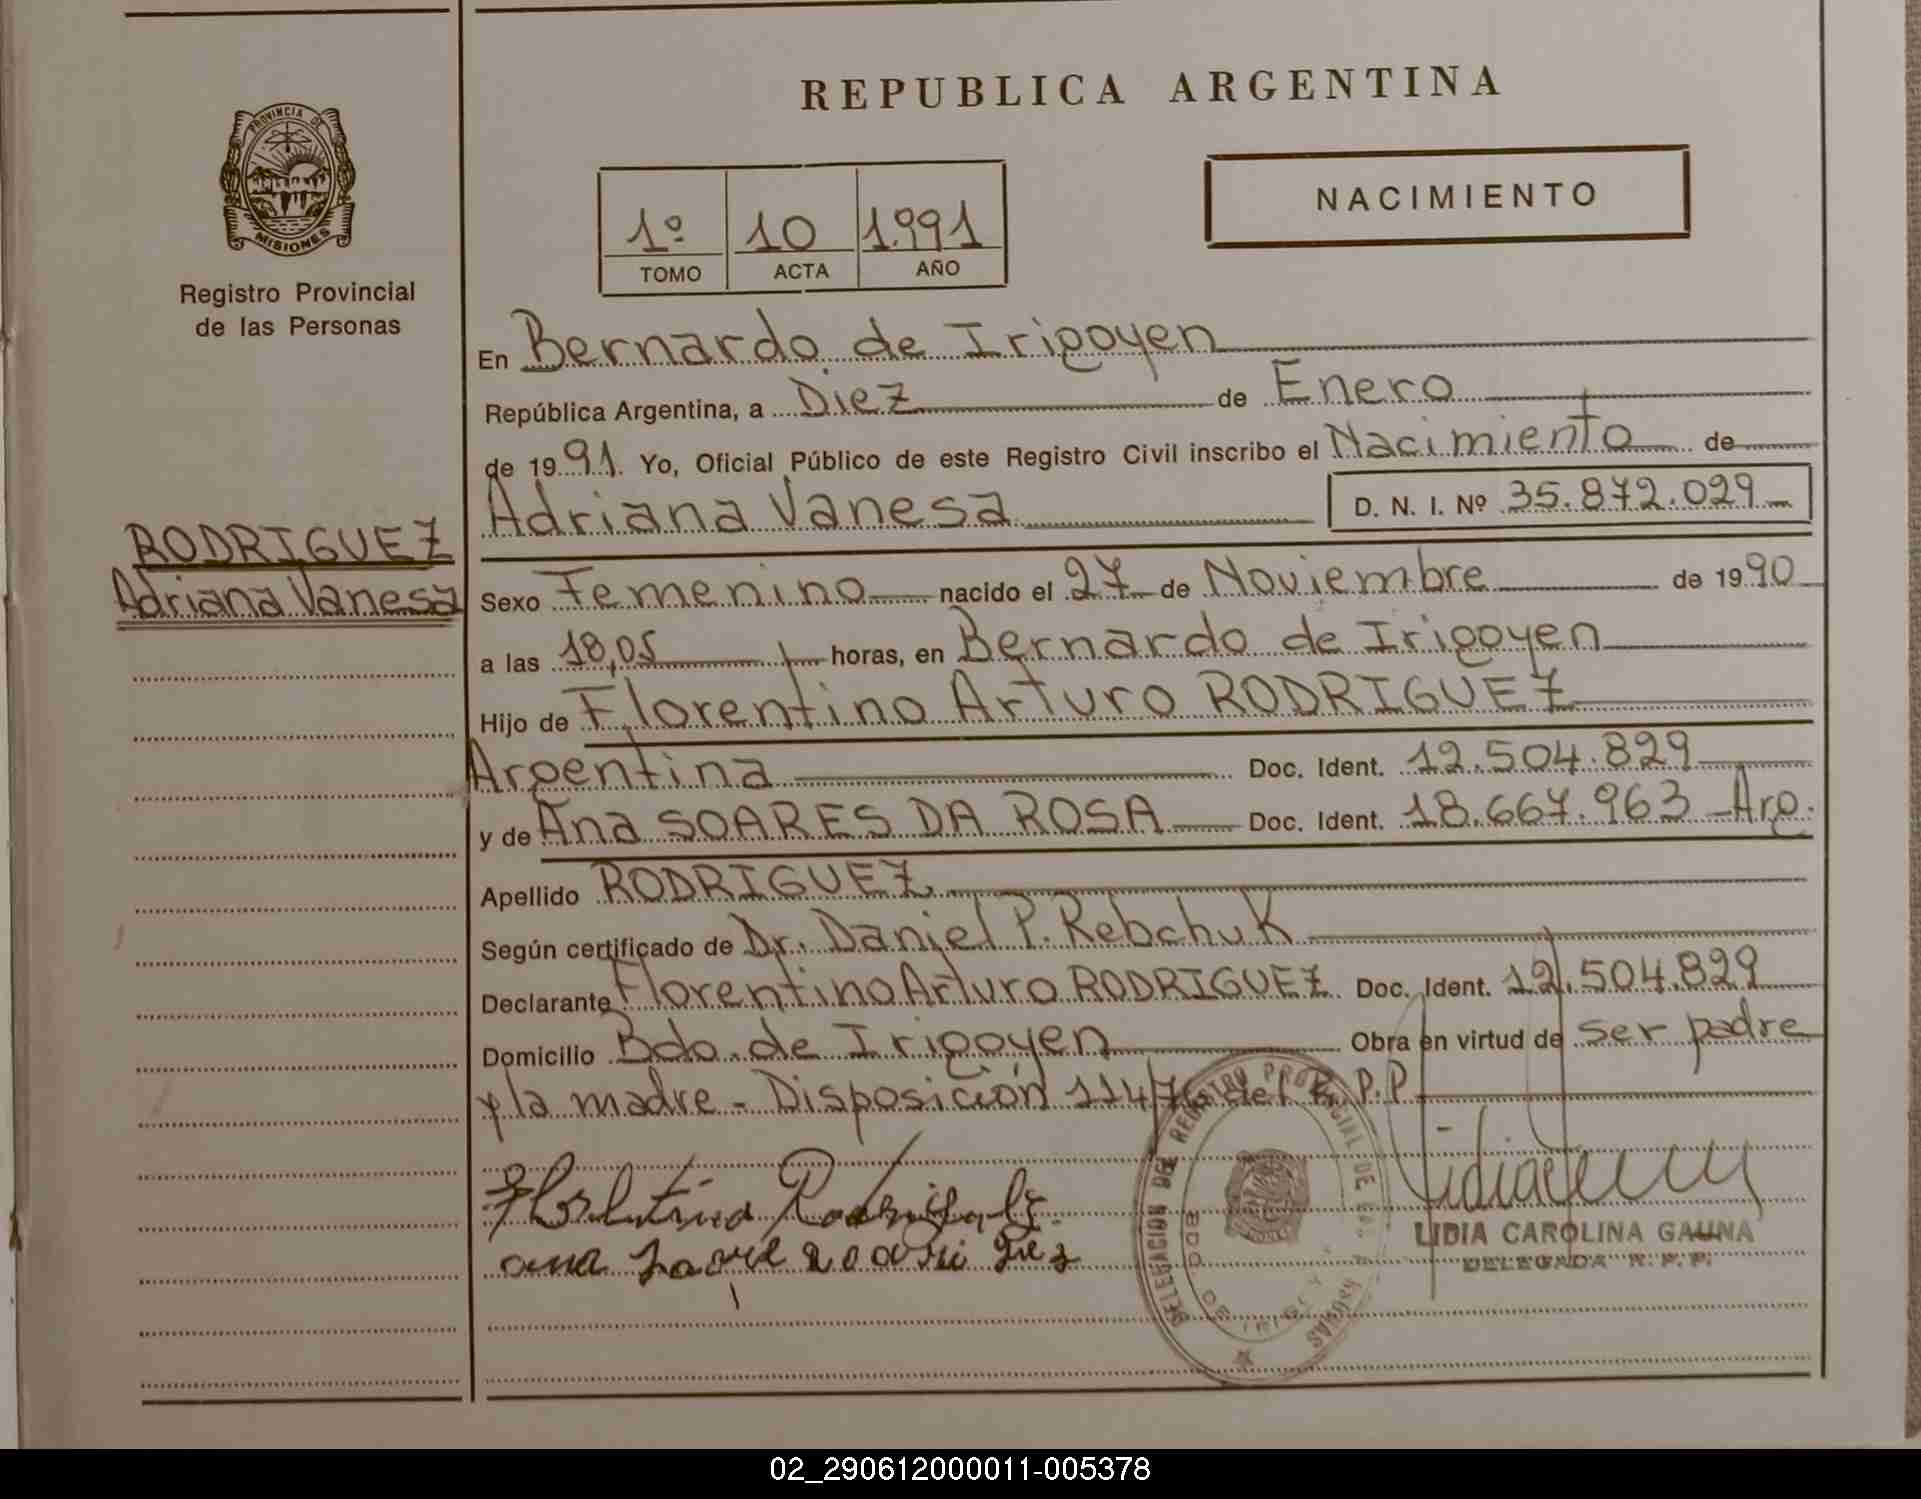 REPUBLICA ARGENTINA
PROVINCIA DE
MISIONES
Registro Provincial
de las Personas
NACIMIENTO
1º 10 1.991
TOMO ACTA AÑO
En Bernardo de Irigoyen
República Argentina, a Diez de Enero
de 1991. Yo, Oficial Público de este Registro Civil inscribo el Nacimiento de
Adriana Vanesa D. N. I. Nº 35.872.029
RODRIGUEZ
Adriana Vanesa
Sexo Femenino nacido el 27 de Noviembre de 1990
a las 18,05 horas, en Bernardo de Irigoyen
Hijo de Florentino Arturo RODRIGUEZ
Argentina Doc. Ident. 12.504.829
y de Ana SOARES DA ROSA Doc. Ident. 18.667.963 - Arg.
Apellido RODRIGUEZ.
Según certificado de Dr. Daniel P. Rebchuk
Declarante Florentino Arturo RODRIGUEZ Doc. Ident. 12.504.829
Domicilio Bdo. de Irigoyen Obra en virtud de ser padre
y la madre - Disposición 114/76 del R.P.P.
DELEGACION DEL REGISTRO PROVINCIAL DE LAS PERSONAS
BDO. DE IRIGOYEN
LIDIA CAROLINA GAUNA
DELEGADA R. P. P.
02_290612000011-005378